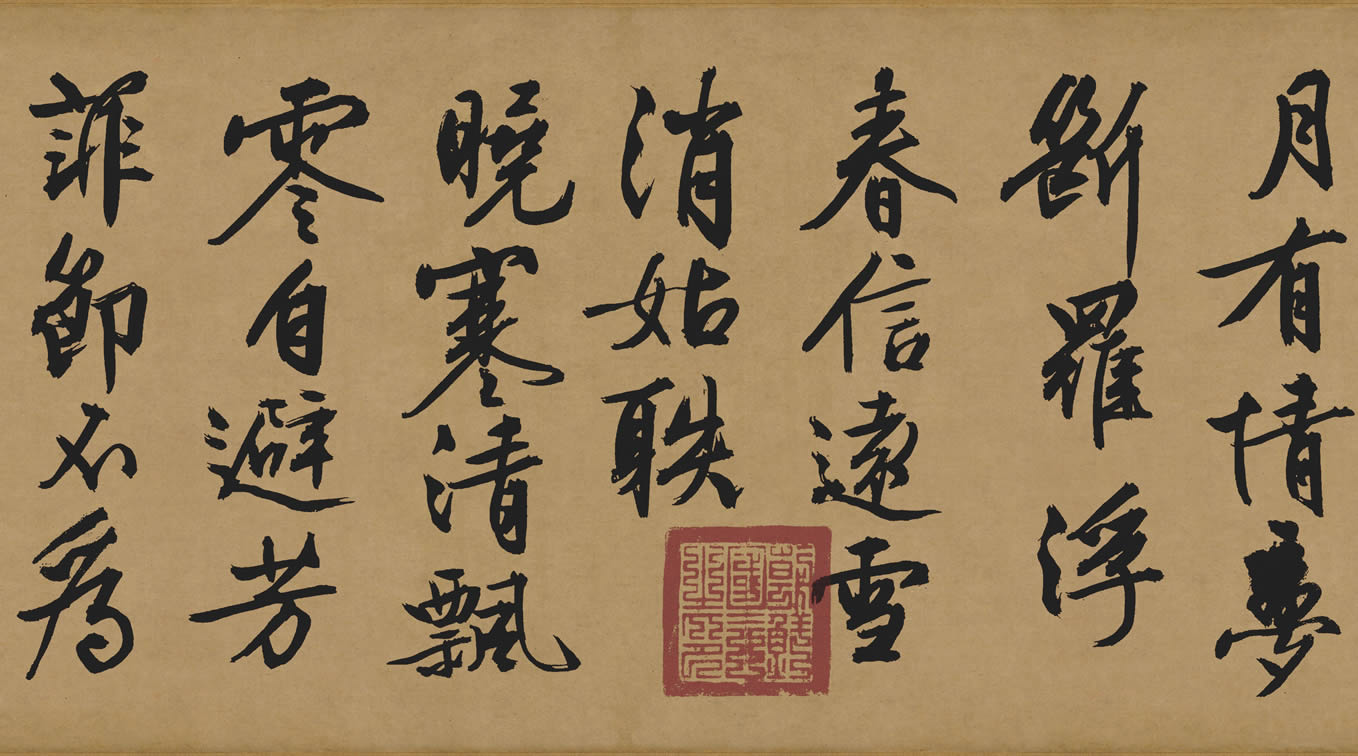 月有情夢
斷羅浮
春信遠雪
消姑射
曉寒清飄
零自避芳
菲節不為